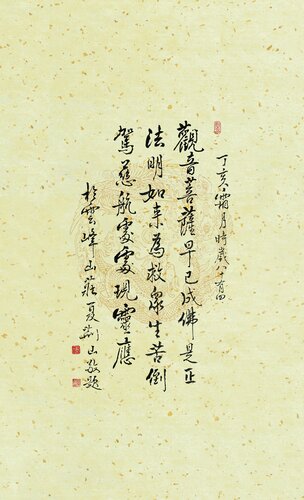 丁亥霜月時歲八十有四
觀音菩薩早已成佛是正
法明如来為救衆生苦倒
駕慈航處處現靈應
於雲峰山莊夏荊山敬題